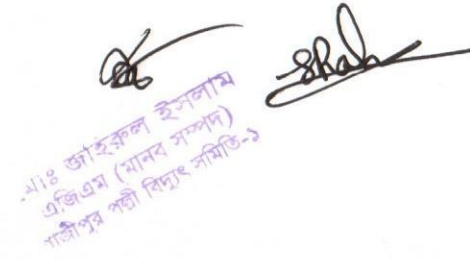 Shah
মোঃ জাহিরুল ইসলাম
এজিএম (মানব সম্পদ)
গাজীপুর পল্লী বিদ্যুৎ সমিতি-১